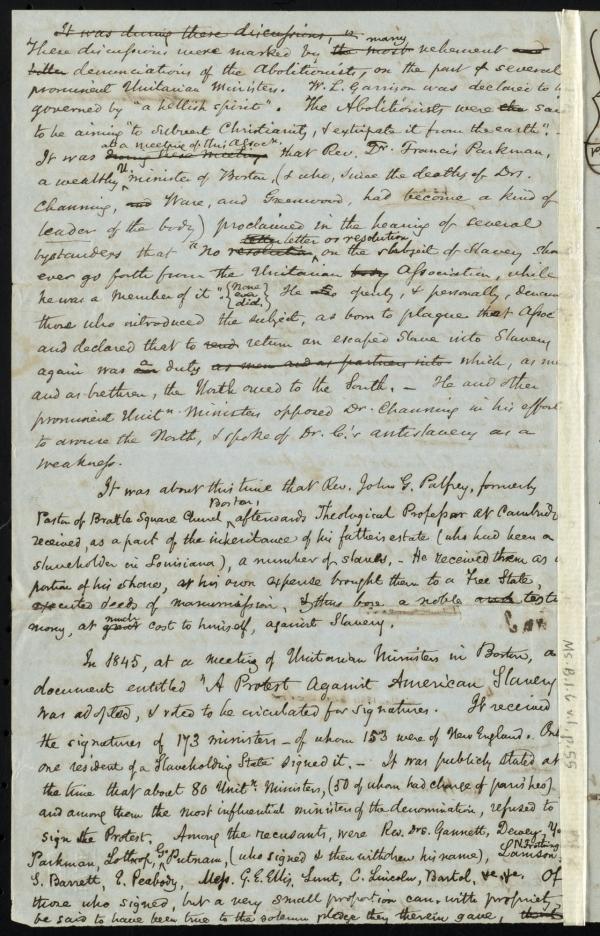 It was during these discussions,
These discussions were marked by the most many vehement and
bitter denunciations of the Abolitionists, on the part of several
prominent Unitarian Ministers. W. L. Garrison was declared to b
governed by "a hellish spirit". The Abolitionists were the sai
to be aiming "to subvert Christianity, & extirpate it from the earth".
at a meeting of this Assocn.
It was during these meetings that Rev. Dr. Francis Parkman,
a wealthy U. minister of Boston, (& who, since the deaths of Drs.
Channing, and Ware, and Greenwood, had become a kind of
leader of the body) proclaimed in the hearing of several
letter or resolution
bystanders that "no resolution on the subject of Slavery shou
ever go forth from the Unitarian body Association, while
he was a member of it". {None ever did.} He openly, & personally, denoun
those who introduced the subject, as born to plague that Assoc
and declared that to send return an escaped Slave into Slavery
again was a duty as men and as partners into which, as m
and as brethren, the North owed to the South. – He and other
prominent Unitn. Ministers opposed Dr. Channing in his effort
to arouse the North, & spoke of Dr. C.'s antislavery as a
weakness.
It was about this time that Rev. John G. Palfrey, formerly
Pastor of Brattle Square Church, Boston, afterwards Theological Professor at Cambridg
received, as a part of the inheritance of his father's estate (who had been a
slaveholder in Louisiana), a number of slaves. – He received them as a
portion of his share, at his own expense brought them to a Free State,
executed deeds of manumission, & thus bore a noble testi
mony, at great much cost to himself, against Slavery.
In 1845, at a meeting of Unitarian Ministers in Boston, a
document entitled "A Protest Against American Slavery
was adopted, & voted to be circulated for signatures. It received
the signatures of 173 ministers – of whom 153 were of New England. On
one resident of a Slaveholding State signed it. – It was publicly stated at
the time that about 80 Unitn. Ministers, (50 of whom had charge of parishes)
and among them the most influential ministers of the denomination, refused to
sign the Protest. Among the recusants, were Rev. Drs. Gannett, Dewey, Yo
Parkman, Lothrop, G. Putnam, (who signed & then withdrew his name), Lamson, N. Frothing
S. Barrett, E. Peabody, Mess. G. E. Ellis, Lunt, C. Lincoln, Bartol, &c. &c. Of
those who signed, but a very small proportion can with propriety
be said to have been true to the solemn pledge they therein gave,
Ms. B.1.6 v.1, p.55